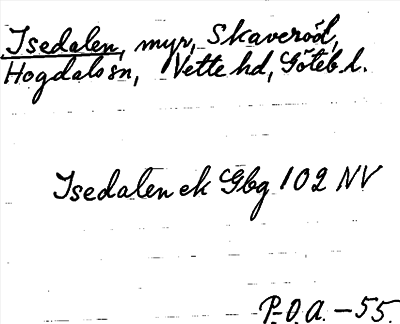 Isedalen, myr, Skaveröd,
Hogdals sn, Vette hd, Göteb. l.
Isedalen ek Gbg 102 NV
P.O.A. -55.